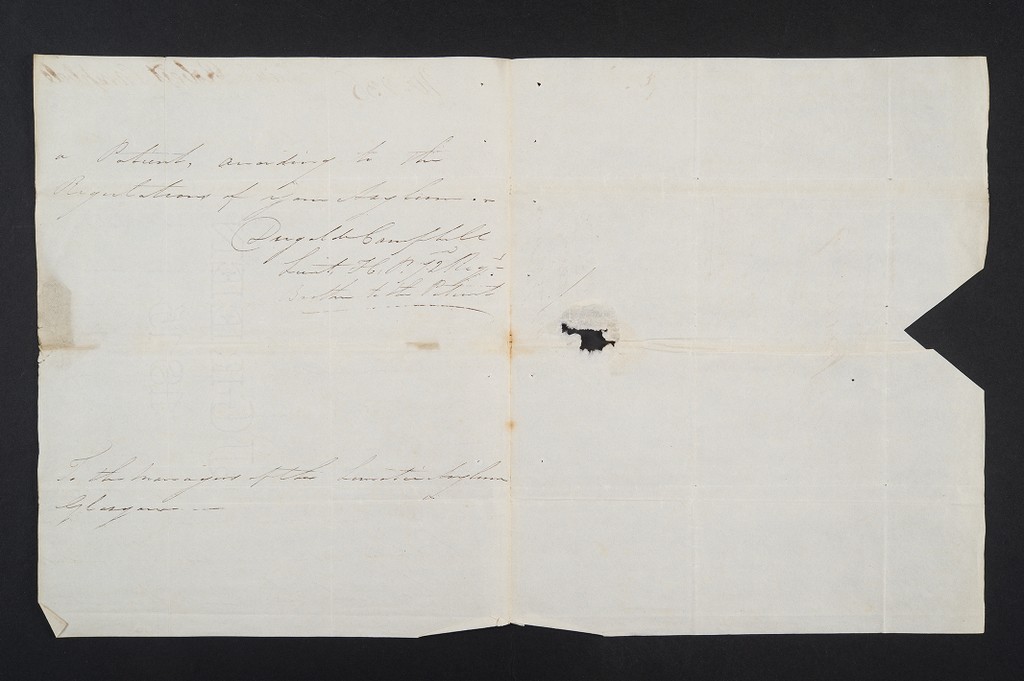 a Patient, according to the
Regulations of your Asylum.
Dugald Campbell
Lieut H. P. 72 Regt
Brother to the Patient
To the Managers of the Lunatic Asylum
Glasgow